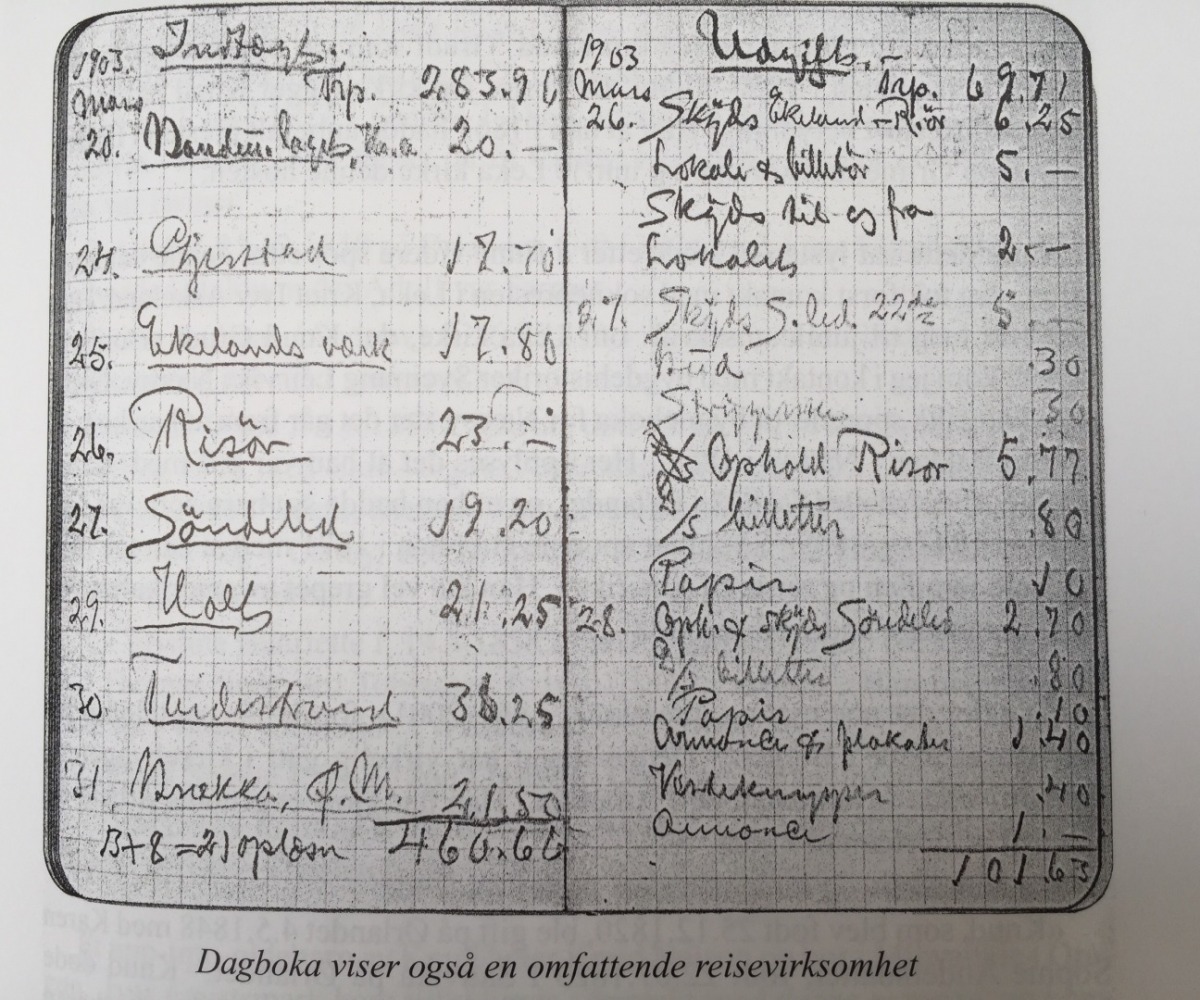 1903. Indtægt.
Mars Trp. 283.96
20. Bondeu. lagets, 20.—
24. Gjerstad 17.70
25. Ekelands værk 17.80
26. Risör 23.—
27. Söndeled 19.20
29. Holt 21.25
30. Tvedestrand 38.25
31. Brækka, Ø.M. 21.50
13+8=21 oplæsn 466.66
1903 Udgift.—
Mars Trp. 69.71
26. Skyds Ekeland—Risör 6.25
Lokale & billetör 5.—
Skyds til og fra
Lokalets 2.—
27. Skyds S.led. 22de 5.—
Bud .30
.30
Ophold Risör 5.77
/5 billetter .80
Papir 10
28. Oph. & skyds Söndeled 2.70
billetter .80
Papir .10
Annonce & plakater 1.40
.40
Annonce 1.—
101.63
Dagboka viser også en omfattende reisevirksomhet